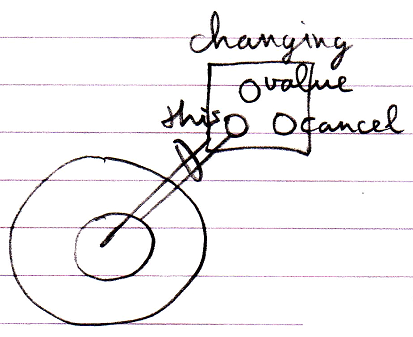 changing
value
this
cancel